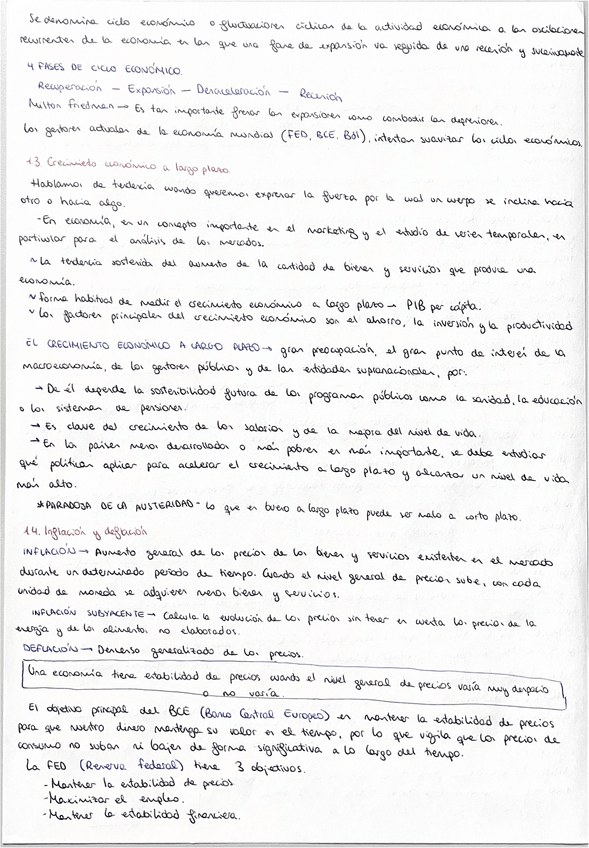 Se denomina ciclo económico o fluctuaciones cíclicas de la actividad económica a las oscilaciones
recurrentes de la economía en las que una fase de expansión va seguida de una recesión y sucesivamente
4 FASES DE CICLO ECONÓMICO.
Recuperación - Expansión - Desaceleración - Recesión
Milton Friedman → Es tan importante frenar las expansiones como combatir las depresiones.
Los gestores actuales de la economía mundial (FED, BCE, BdI), intentan suavizar los ciclos económicos
1.3. Crecimiento económico a largo plazo
Hablamos de tendencia cuando queremos expresar la fuerza por la cual un cuerpo se inclina hacia
otro o hacia algo.
-En economía, es un concepto importante en el marketing y el estudio de series temporales, en
particular para el análisis de los mercados.
~ La tendencia sostenida del aumento de la cantidad de bienes y servicios que produce una
economía.
~ forma habitual de medir el crecimiento económico a largo plazo → PIB per cápita.
~ Los factores principales del crecimiento económico son el ahorro, la inversión y la productividad
EL CRECIMIENTO ECONÓMICO A LARGO PLAZO → gran preocupación, el gran punto de interés de la
macroeconomía, de los gestores públicos y de las entidades supranacionales, por:
→ De él depende la sostenibilidad futura de los programas públicos como la sanidad, la educación
o los sistemas de pensiones.
→ Es clave del crecimiento de los salarios y de la mejora del nivel de vida.
→ En los países menos desarrollados o más pobres es más importante, se debe estudiar
qué políticas aplicar para acelerar el crecimiento a largo plazo y alcanzar un nivel de vida
más alto.
*PARADOJA DE LA AUSTERIDAD - lo que es bueno a largo plazo puede ser malo a corto plazo.
1.4. Inflación y deflación
INFLACIÓN → Aumento general de los precios de los bienes y servicios existentes en el mercado
durante un determinado período de tiempo. Cuando el nivel general de precios sube, con cada
unidad de moneda se adquieren menos bienes y servicios.
INFLACIÓN SUBYACENTE → Calcula la evolución de los precios sin tener en cuenta los precios de la
energía y de los alimentos no elaborados.
DEFLACIÓN → Descenso generalizado de los precios.
Una economía tiene estabilidad de precios cuando el nivel general de precios varía muy despacio
o no varía.
El objetivo principal del BCE (Banco Central Europeo) es mantener la estabilidad de precios
para que nuestro dinero mantenga su valor en el tiempo, por lo que vigila que los precios de
consumo no suban ni bajen de forma significativa a lo largo del tiempo.
La FED (Reserva federal) tiene 3 objetivos.
-Mantener la estabilidad de precios
-Maximizar el empleo.
-Mantener la estabilidad financiera.